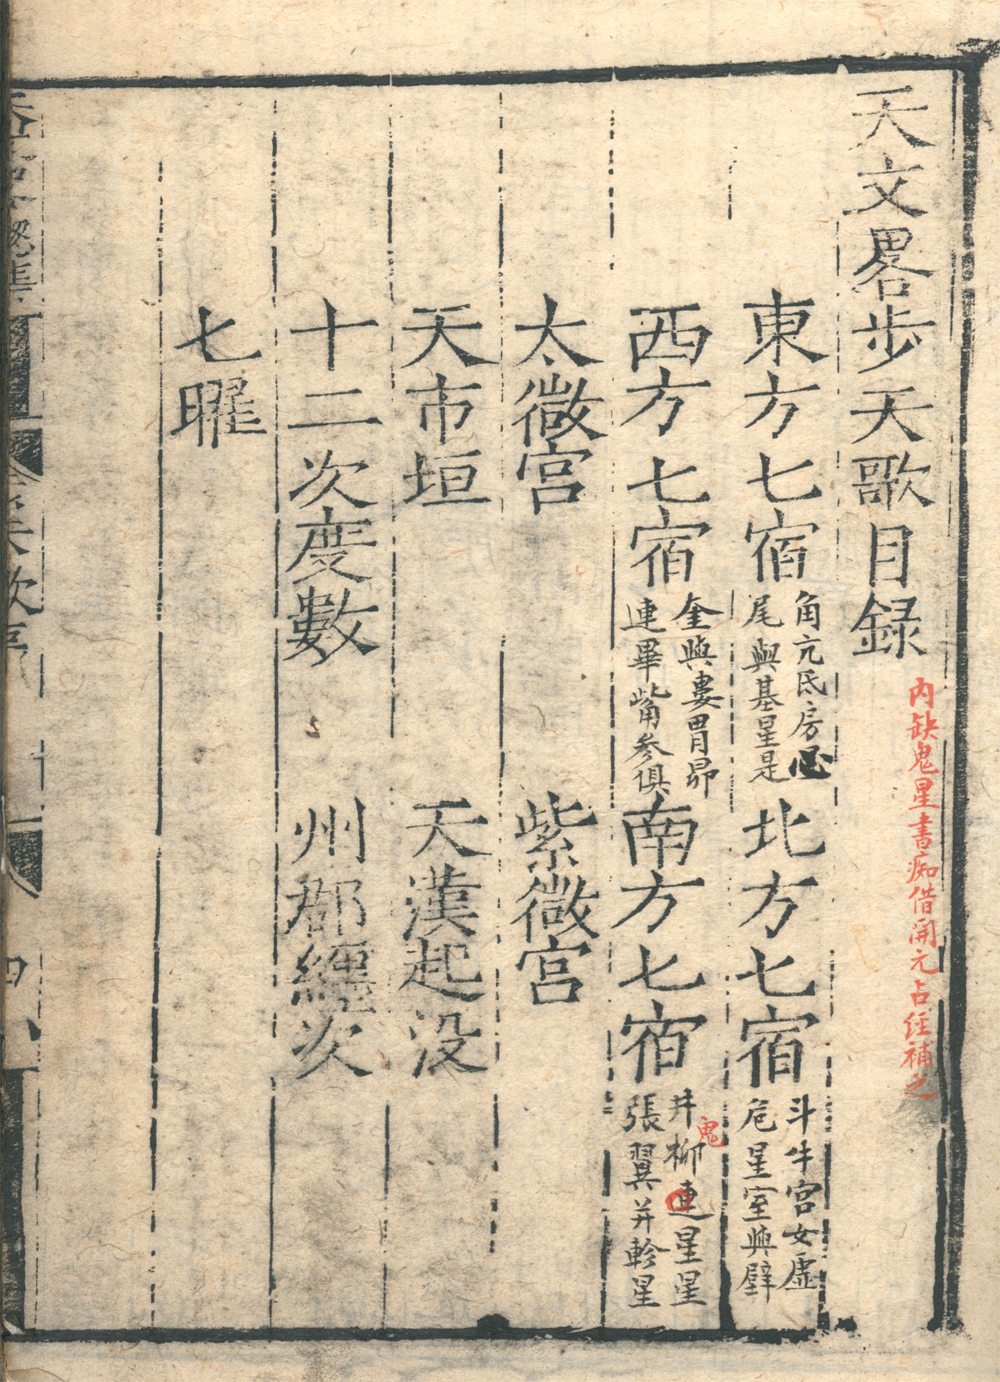 天文畧步天歌目録
内缺鬼星書痴借開元占经補之
東方七宿 角亢氐房心 尾與基星是 北方七宿 斗牛宮女虛 危星室與壁
西方七宿 奎與婁胃昴 連畢觜參俱 南方七宿 井柳連星星 張翼并軫星
鬼
太微宫 紫微宫
天市垣 天漢起没
十二次度數 州郡纏次
七曜